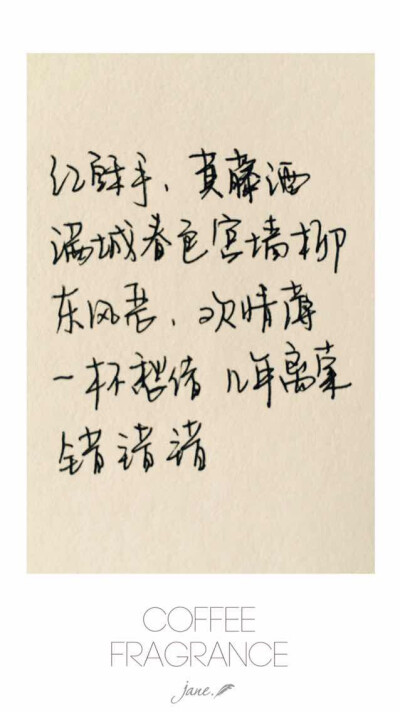 红酥手、黄藤酒
满城春色宫墙柳
东风恶，欢情薄
一杯愁绪 几年离索
错错错
COFFEE
FRAGRANCE
jane.